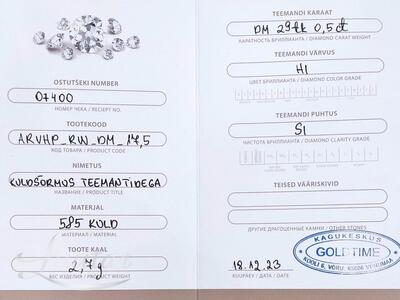 OSTUTŠEKI NUMBER
07400
НОМЕР ЧЕКА / RECIEPT NO.
TOOTEKOOD
ARVHP_RW_DM_17,5
КОД ТОВАРА / PRODUCT CODE
NIMETUS
KULDSÕRMUS TEEMANTIDEGA
НАЗВАНИЕ / PRODUCT TITLE
MATERJAL
585 KULD
МАТЕРИАЛ / MATERIAL
TOOTE KAAL
2,7g
ВЕС ИЗДЕЛИЯ / PRODUCT WEIGHT
TEEMANDI KARAAT
DM 29tk 0,5 ct
КАРАТНОСТЬ БРИЛЛИАНТА / DIAMOND CARAT WEIGHT
TEEMANDI VÄRVUS
HI
ЦВЕТ БРИЛЛИАНТА / DIAMOND COLOR GRADE
TEEMANDI PUHTUS
SI
ЧИСТОТА БРИЛЛИАНТА / DIAMOND CLARITY GRADE
TEISED VÄÄRISKIVID
ДРУГИЕ ДРАГОЦЕННЫЕ КАМНИ / OTHER STONES
18.12.23
KUUPÄEV / ДАТА / DATE
KAGUKESKUS
GOLDTIME
KOOLI 6, VÕRU, 65606 VÕRUMAA